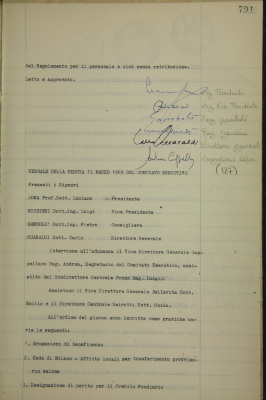 791
del Regolamento per il personale e cioè senza retribuzione.
Letto e approvato.
Ing. Presidente
Ing. Vice Presidente
Rag.
Rag.
Direttore generale
(127)
VERBALE DELLA SEDUTA 11 MARZO 1958 DEL COMITATO ESECUTIVO
Presenti i Signori
JONA Prof.Dott. Luciano Presidente
RICHIERI Dott.Ing. Luigi Vice Presidente
GAMBOLO' Dott.Ing. Pietro Consigliere
GUARALDI Dott. Mario Direttore Generale
Interviene all'adunanza il Vice Direttore Generale Cap-
pellano Rag. Andrea, Segretario del Comitato Esecutivo, assi-
stito dal Condirettore Centrale Prono Rag. Luigi.
Assistono il Vice Direttore Generale Bellavita Dott.
Emilio e il Direttore Centrale Dott. Guido.
All'ordine del giorno sono iscritte come pratiche va-
rie le seguenti:
1. Erogazioni di beneficenza
2. Sede di Milano - Affitto locali per trasferimento provviso-
rio salone
3. Designazione di perito per il Credito Fondiario